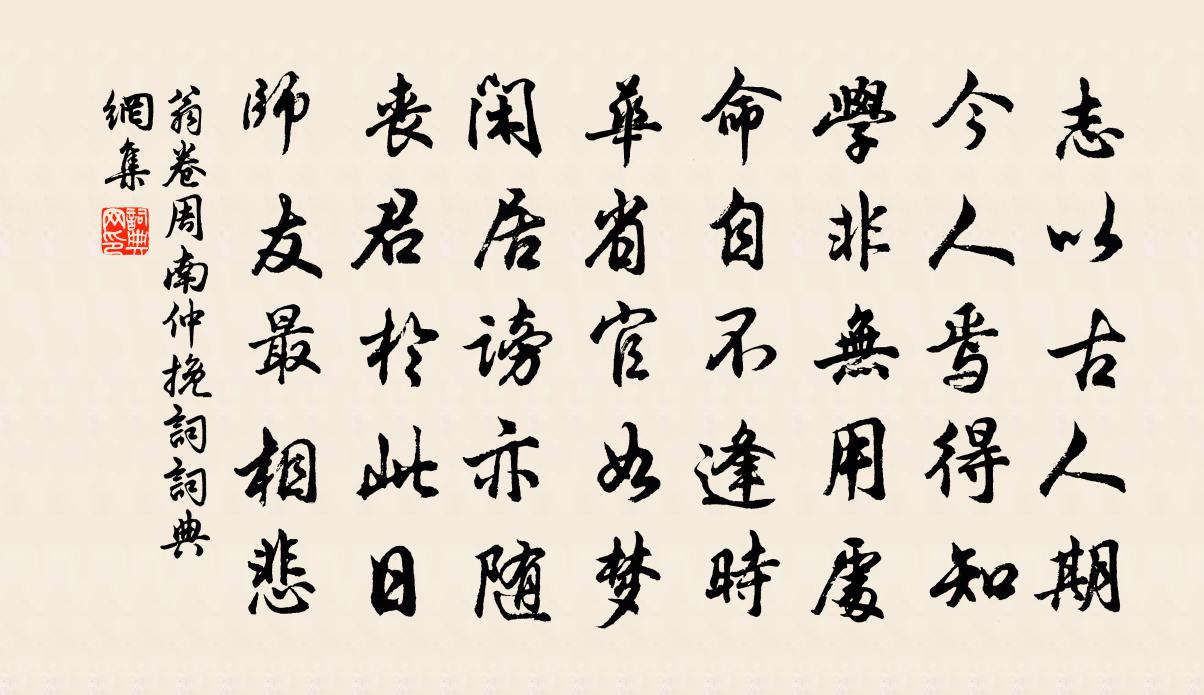 志以古人期
今人焉得知
學非無用處
命自不逢時
華省官如梦
闲居謗亦随
丧君於此日
師友最相悲
翁卷周南仲挽詞詞典
網集
詞典
网印